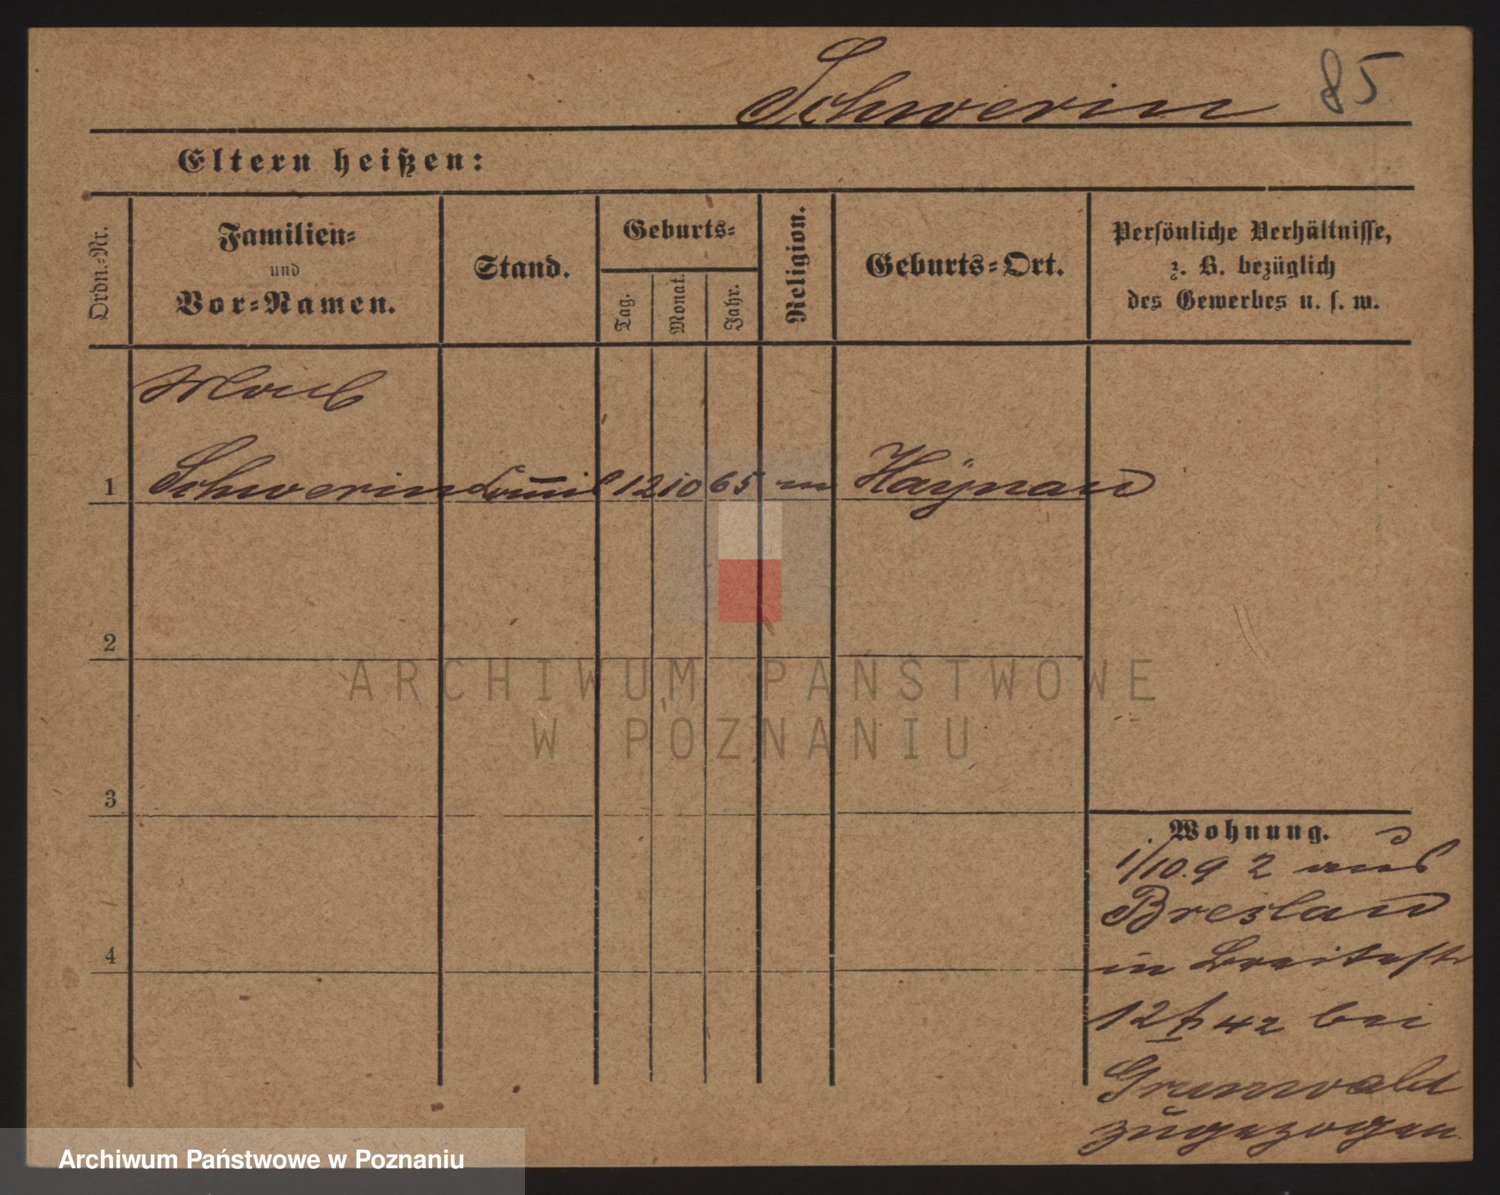 Schwerin 85
Eltern heißen:
Ordn.-Nr.
Familien-
und
Vor-Namen.
Stand.
Geburts-
Tag.
Monat.
Jahr.
Religion.
Geburts-Ort.
Persönliche Verhältnisse,
z. B. bezüglich
des Gewerbes u. s. w.
1
Schwerin 12 10 65 m Haynau
2
3
4
Wohnung.
1/10.92 aus
Breslau
in Breitestr
12 42 bei
Grunwald
zugezogen
ARCHIWUM PAŃSTWOWE
W POZNANIU
Archiwum Państwowe w Poznaniu